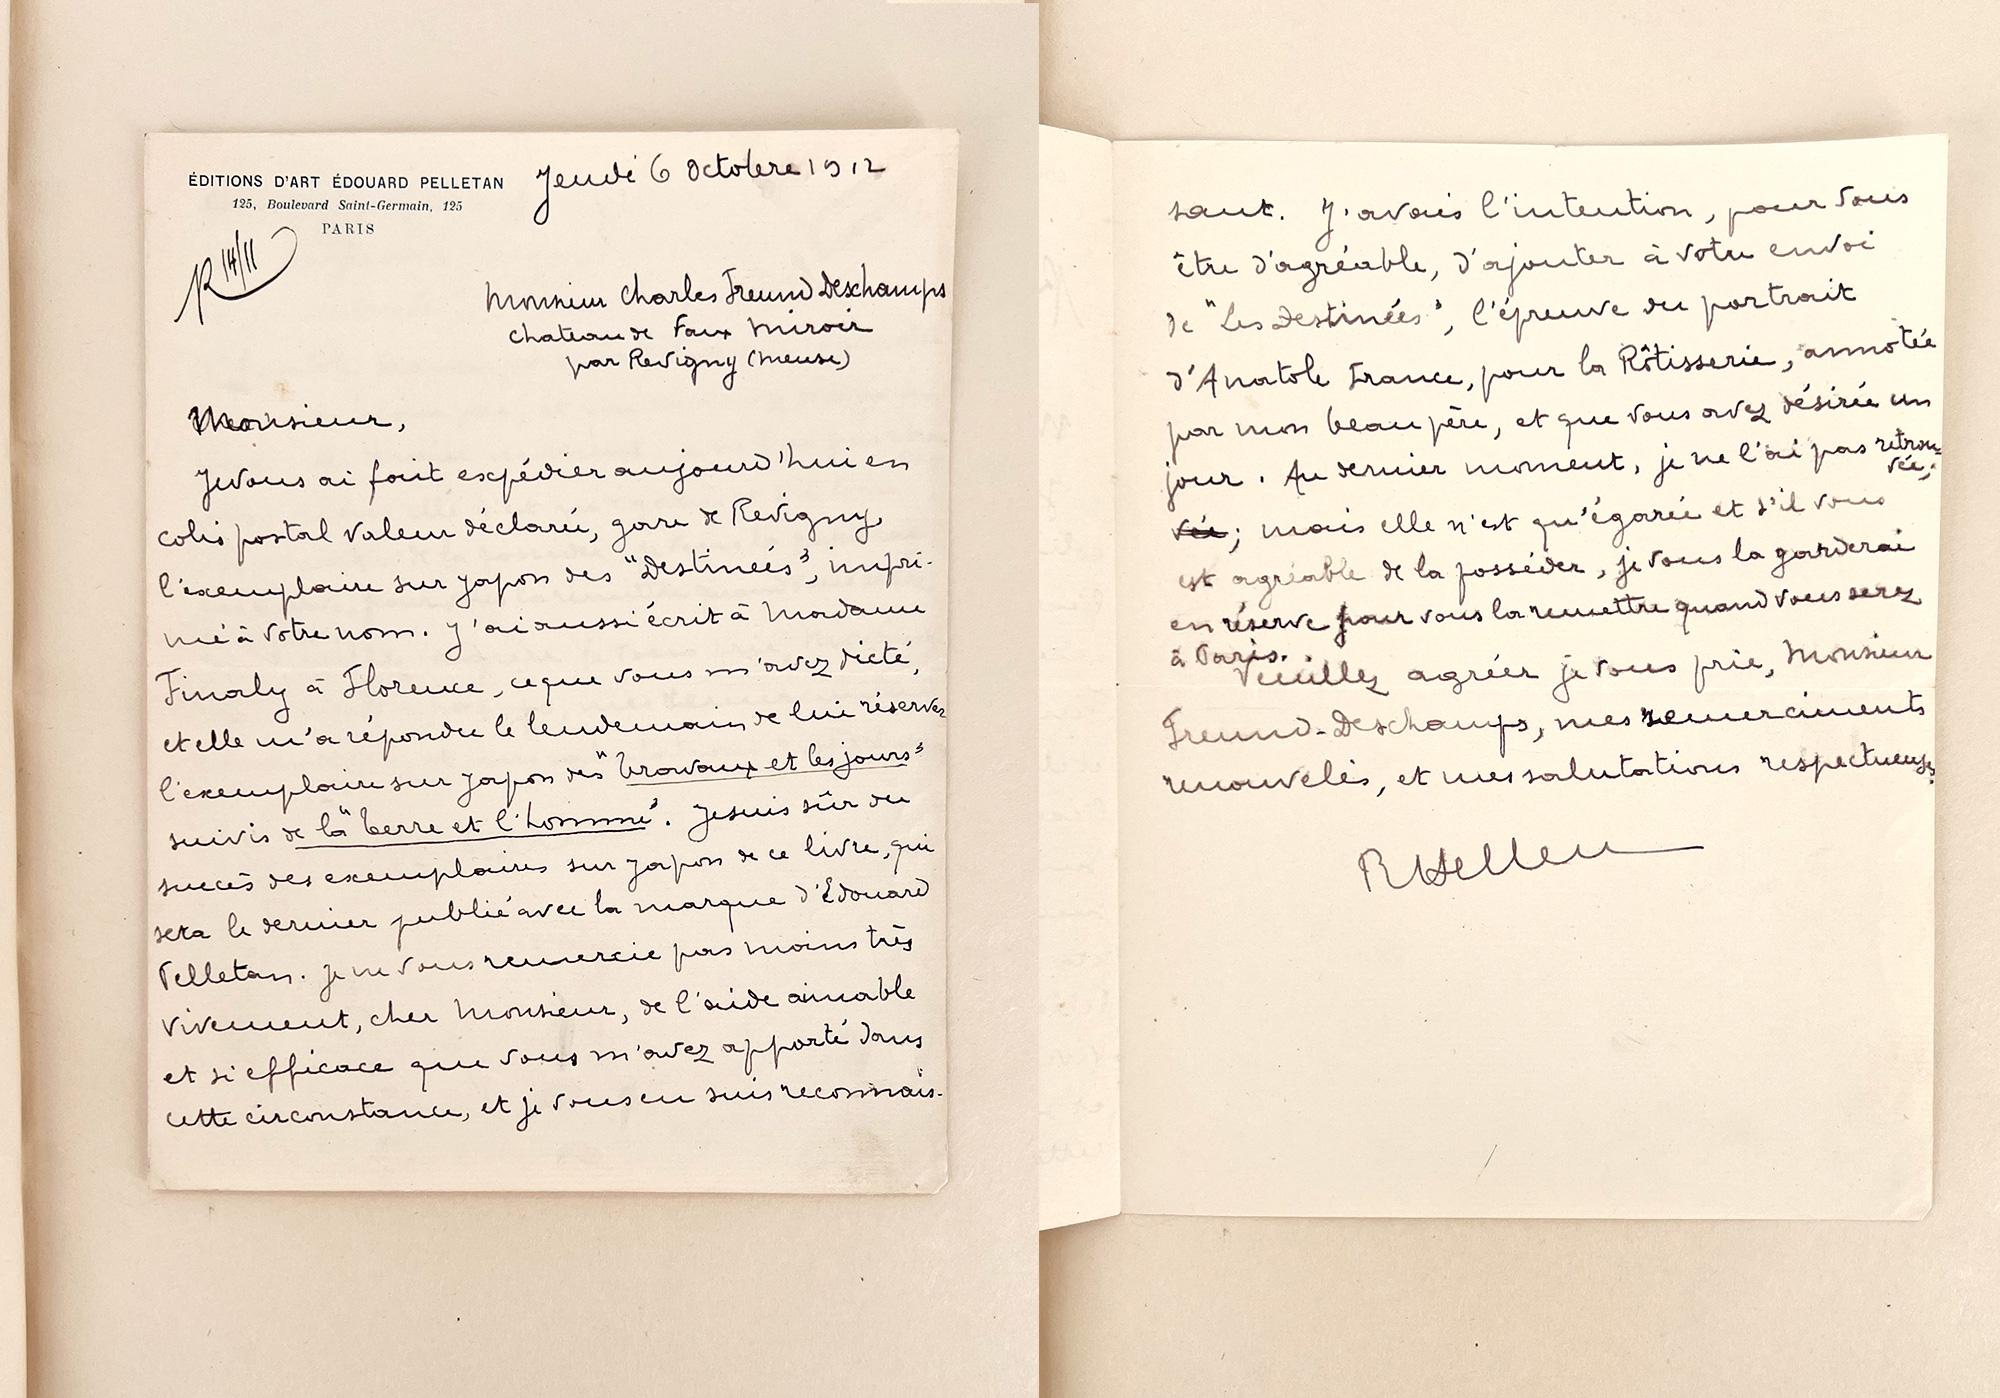 ÉDITIONS D'ART ÉDOUARD PELLETAN
125, Boulevard Saint-Germain, 125
PARIS
Jeudi 6 Octobre 1912
R 14/11
Monsieur Charles Freund Deschamps
Chateau de Faux Miroir
par Revigny (Meuse)
Monsieur,
Je vous ai fait expédier aujourd'hui en
colis postal valeur déclarée, gare de Revigny,
l'exemplaire sur japon des "Destinées", impri-
mé à votre nom. J'ai aussi écrit à Madame
Finaly à Florence, ce que vous m'avez dicté,
et elle m'a répondu le lendemain de lui réserver
l'exemplaire sur japon des "travaux et les jours"
suivis de la "terre et l'homme". Je suis sûr du
succès des exemplaires sur japon de ce livre, qui
sera le dernier publié avec la marque d'Edouard
Pelletan. Je ne vous remercie pas moins très
vivement, cher Monsieur, de l'aide aimable
et si efficace que vous m'avez apporté dans
cette circonstance, et je vous en suis reconnais-
sant. J'avais l'intention, pour vous
être d'agréable, d'ajouter à votre envoi
de "Les Destinées", l'épreuve du portrait
d'Anatole France, pour la Rôtisserie, annotée
par mon beau père, et que vous avez désirée un
jour. Au dernier moment, je ne l'ai pas retrou-
vée;
vée; mais elle n'est qu'égarée et s'il vous
est agréable de la posséder, je vous la garderai
en réserve pour vous la remettre quand vous serez
à Paris.
Veuillez agréer je vous prie, Monsieur
Freund-Deschamps, mes remerciments
renouvelés, et mes salutations respectueuses.
R Helleu